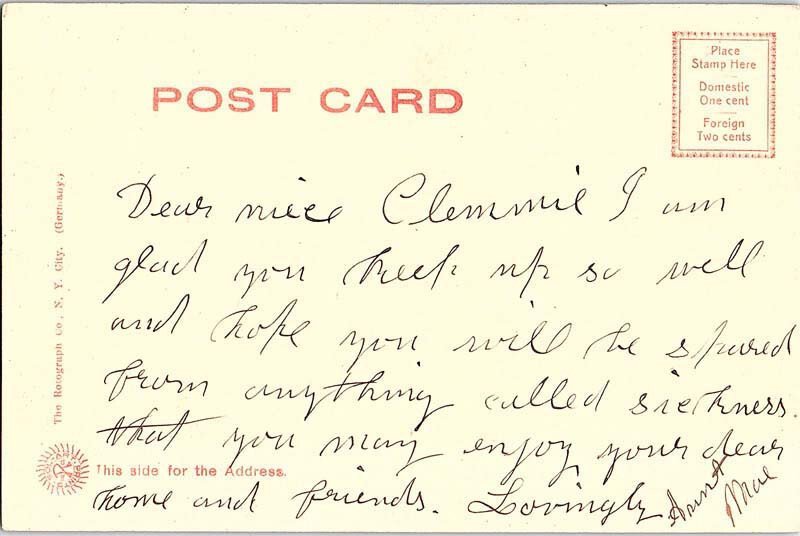 POST CARD
Place
Stamp Here
Domestic
One cent
Foreign
Two cents
Dear niece Clemmie I am
glad you keep up so well
and hope you will be spared
from anything called sickness.
that you may enjoy your dear
home and friends. Lovingly Aunt
Mae
This side for the Address.
The Rotograph Co., N. Y. City. (Germany.)